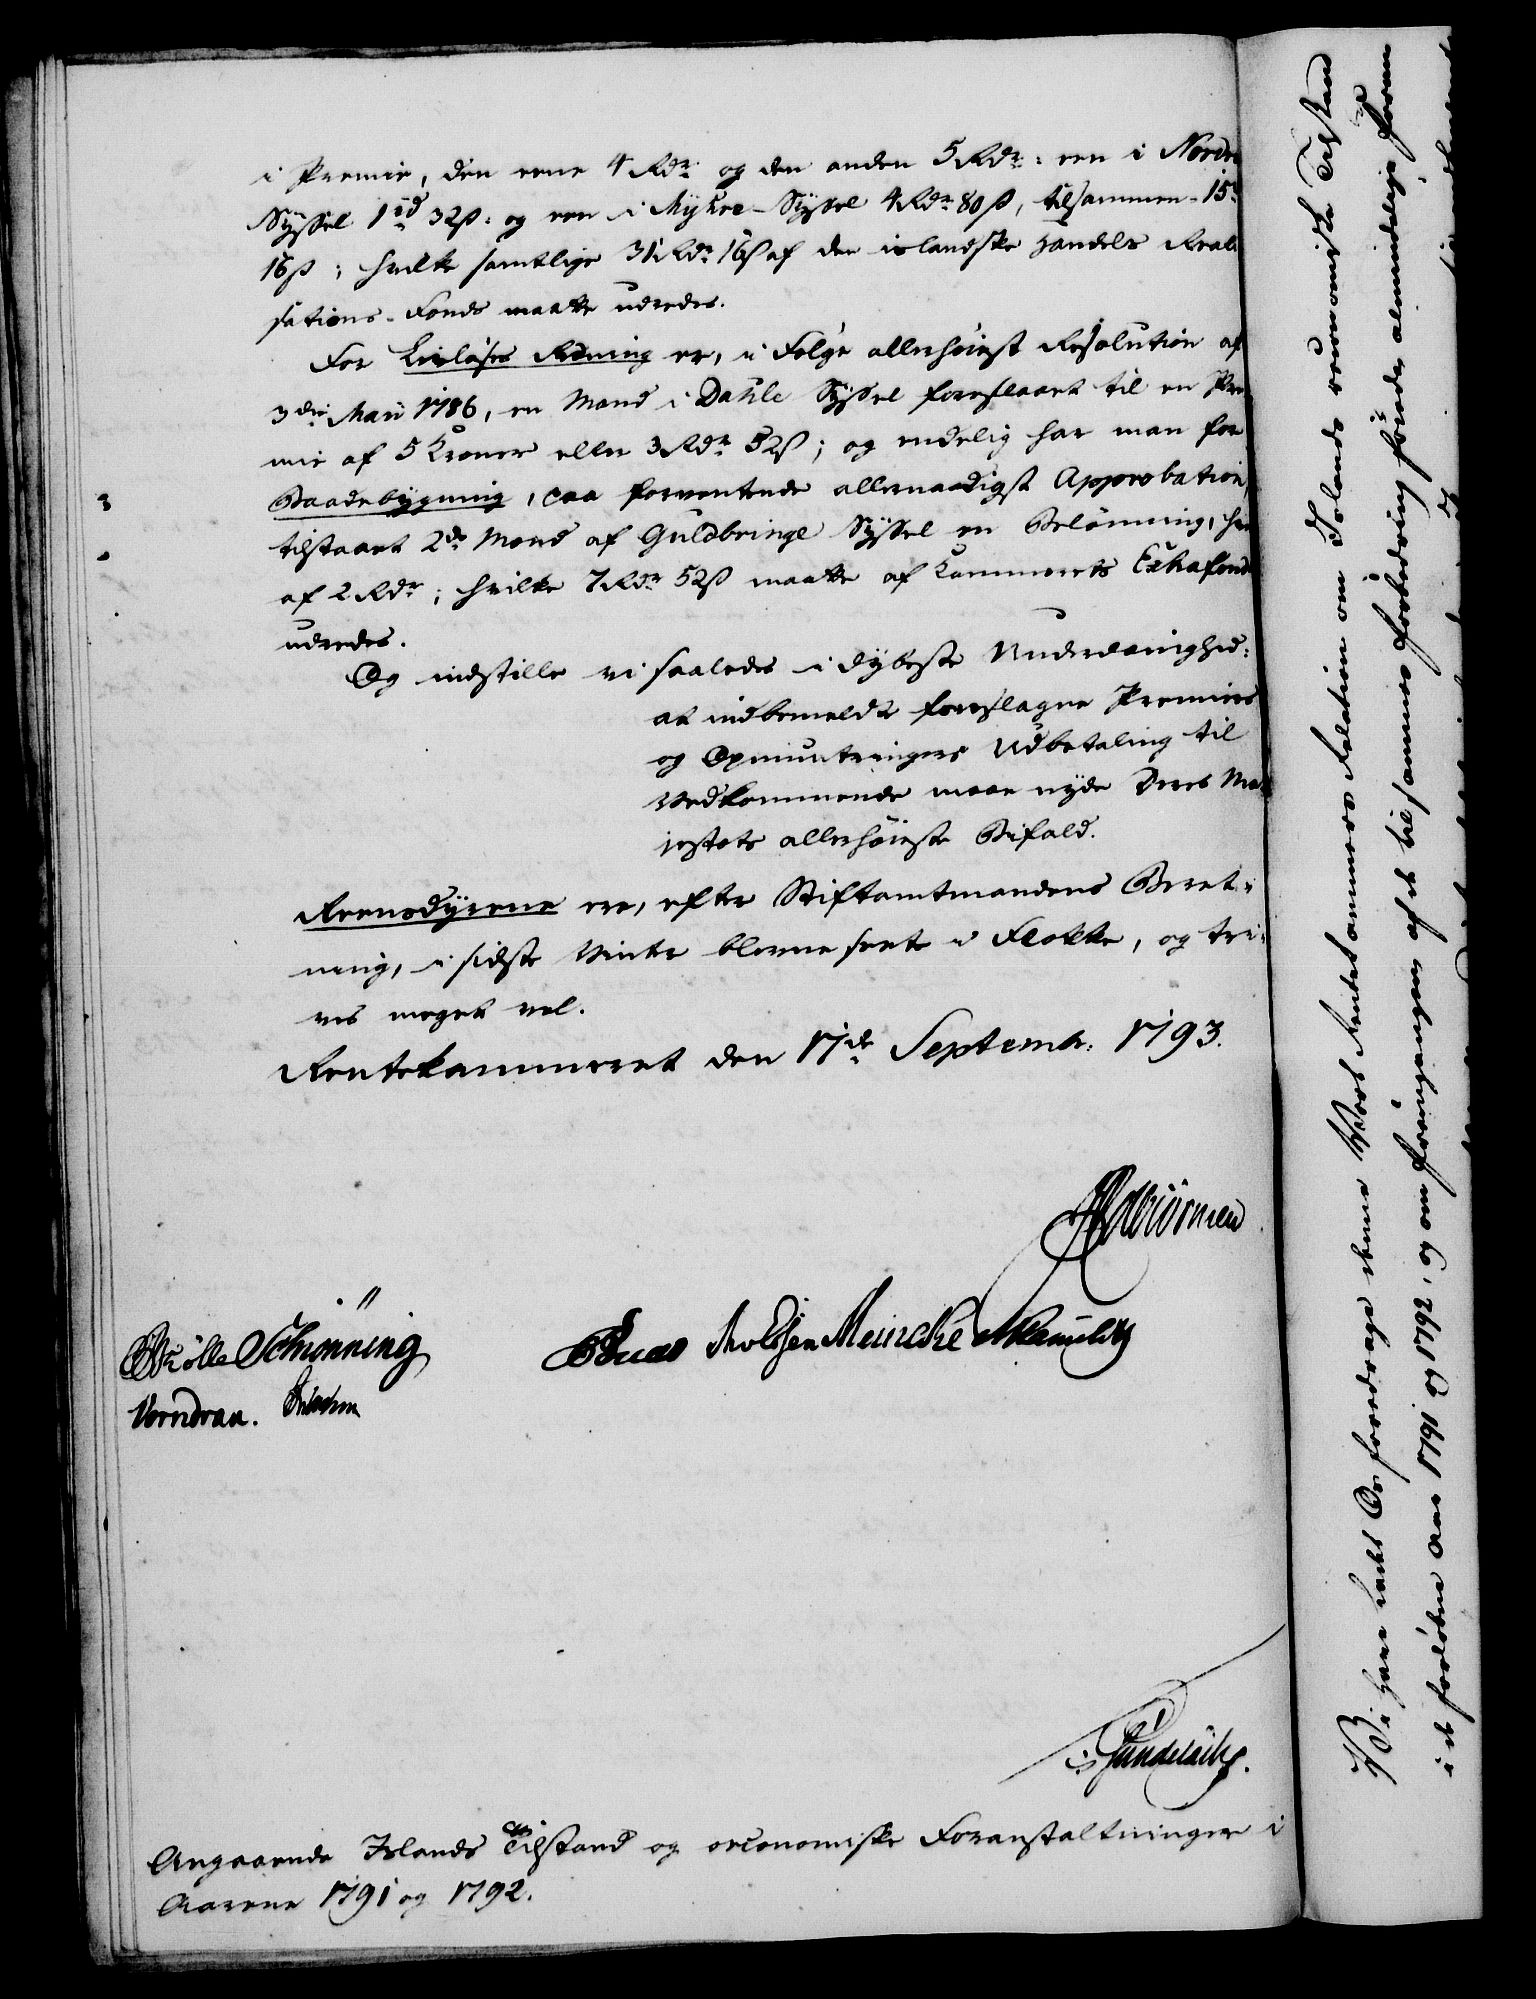 i Premie, den eene 4 Rdr og den anden 5 Rdr: een i Norder
Syssel 1 rd 32 ß: og een i Myhre-Syssel 4 Rdr 80 ß, tilsammen - 15 r
16 ß; hvilke samtlige 31 Rdr 16 ß af den islandske Handels Reali
sations-Fonds maatte udredes.
For Ræning er, i Følge allerhöiest Resolution af
3die Maii 1786, en Mand i Dahle Syssel foreslaaet til en Pre
mie af 5 Kroner eller 3 Rdr 52 ß; og endelig har man for
Baadebygning, paa forventende allernaadigst Approbation,
tilstaaet 2de Mænd af Guldbringe Syssel en Belönning, hver
af 2 Rdr; hvilke 7 Rdr 52 ß maatte af Kammerets Extrafond
udredes.
Og indstille vi saaledes i dybeste Underdanighed:
at indbemeldte foreslagne Premier
og Opmuntringers Udbetaling til
Vedkommende maae nyde Deres Ma
jestæts allerhöieste Bifald.
Reensdyrene ere, efter Stiftamtmandens Beret-
ning, i sidste Vinter blevne seete i Flokke, og tri-
ves meget vel.
Rentekammeret den 17de Septembr: 1793.
Schiønning Meincke
Vorndran.
Angaaende Islands Tilstand og oeconomiske Foranstaltninger i
Aarene 1791 og 1792.
Vi have ladet Os foredrage denne Vort Rentekammers Relation om Islands oeconomiske Tilstand
i de forløbne Aar 1791 og 1792, og om fremgangen af de til sammes forbedring føiede almindelige foran